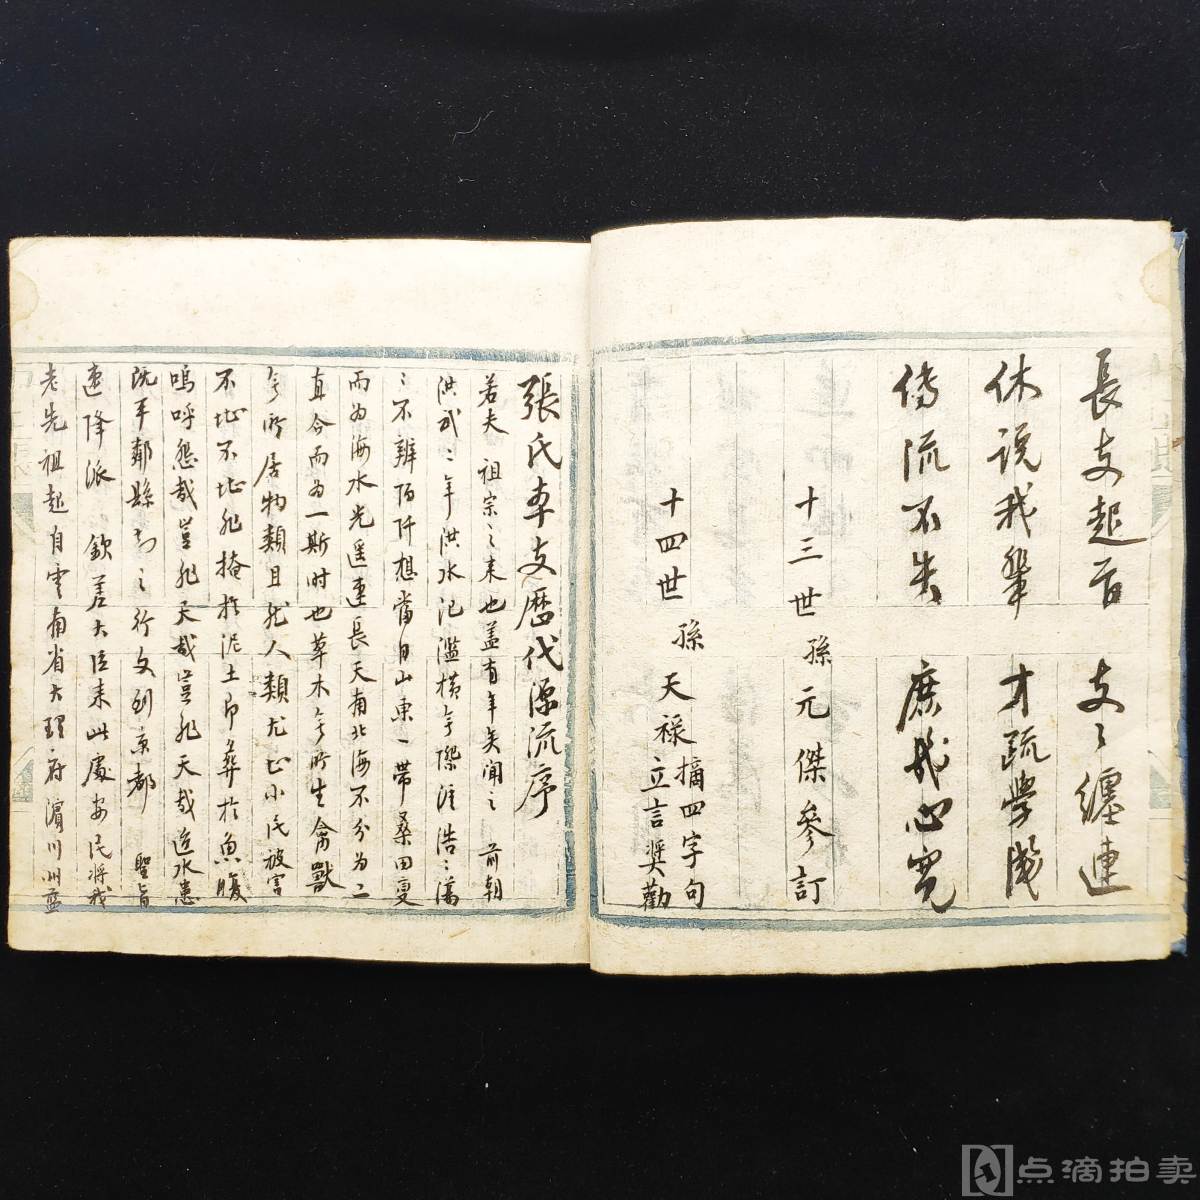 長支起首 支〻纏連
休説我輩 才疏學淺
傳流不失 庶我心寬
十三世孫元傑參訂
十四世孫天禄摘四字句
立言奨勸
張氏本支歷代源流序
若夫 祖宗之来也蓋有年矣聞之 前朝
洪武二年洪水氾濫橫無際涯浩〻蕩
〻不辨陌阡想當日山東一帶桑田變
而为海水光遥連長天南北海不分为二
直合而为一斯时也草木無所生禽獸
無所居物類且然人類尤甚小民被害
不堪不堪非掩於泥土即葬於魚腹
嗚呼怨哉豈非天哉豈非天哉迨水患
既平鄰縣之行文到京都 聖旨
速降派 欽差大臣来此處安民将我
老先祖起自雲南省大理府濵川州
点滴拍卖